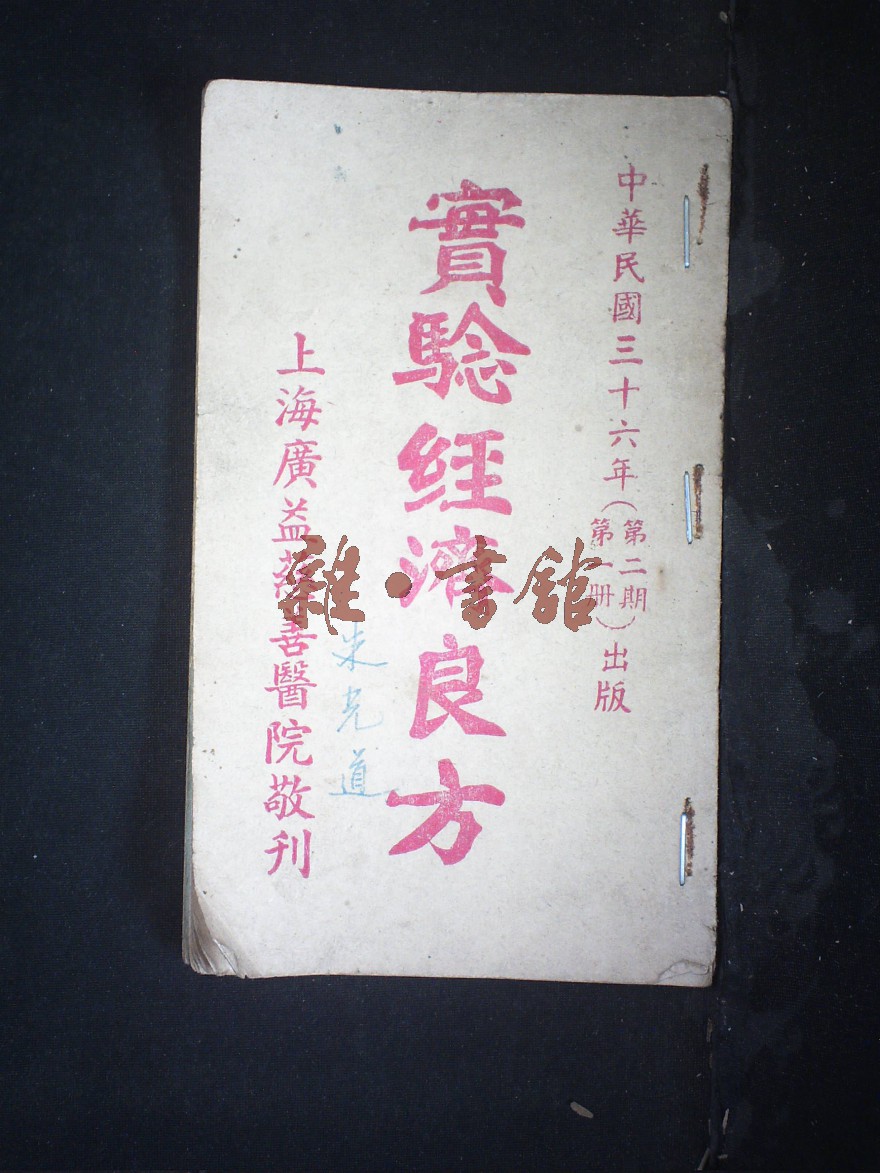 中華民國三十六年（第二期
第一册）出版
實驗經濟良方
朱光道
上海廣益慈善醫院敬刊
雜·書館